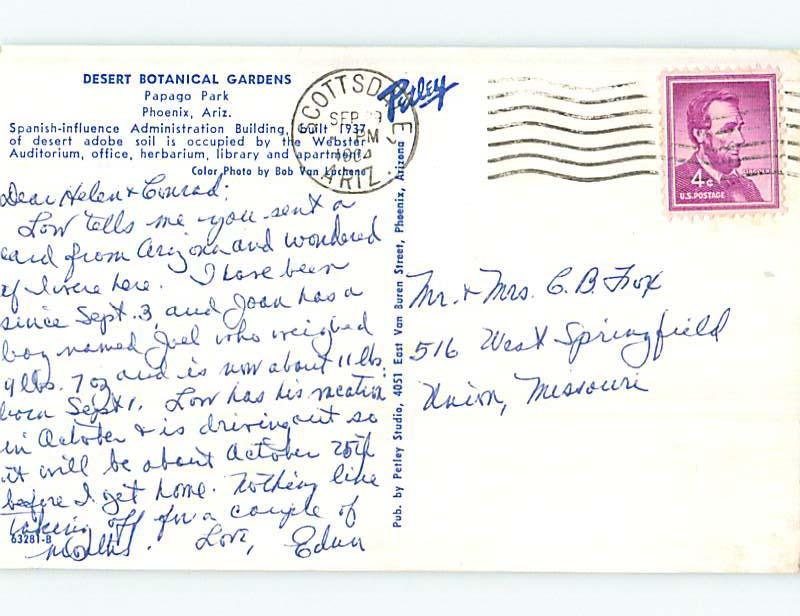 DESERT BOTANICAL GARDENS
Papago Park
Phoenix, Ariz.
Spanish-influence Administration Building, built 1937
of desert adobe soil is occupied by the Webster
Auditorium, office, herbarium, library and apartment.
Color Photo by Bob Van
Dear Helen & Conrad:
Low tells me you sent a
card from Arizona and wondered
if I were here. I have been
since Sept. 3, and Joan has a
boy named Joel who weighed
lbs. 7 oz and is now about 11 lbs.
born Sept 1. Low has his vacation
in October & is driving out so
it will be about October 25th
before I get home. Nothing like
taking off for a couple of
months. Love,
63281-B
Pub. by Petley Studio, 4051 East Van Buren Street, Phoenix, Arizona
Petley
SCOTTSDALE,
SEP
PM
ARIZ.
4¢
U.S. POSTAGE
Mr. & Mrs. C. B. Fox
516 West Springfield
Union, Missouri